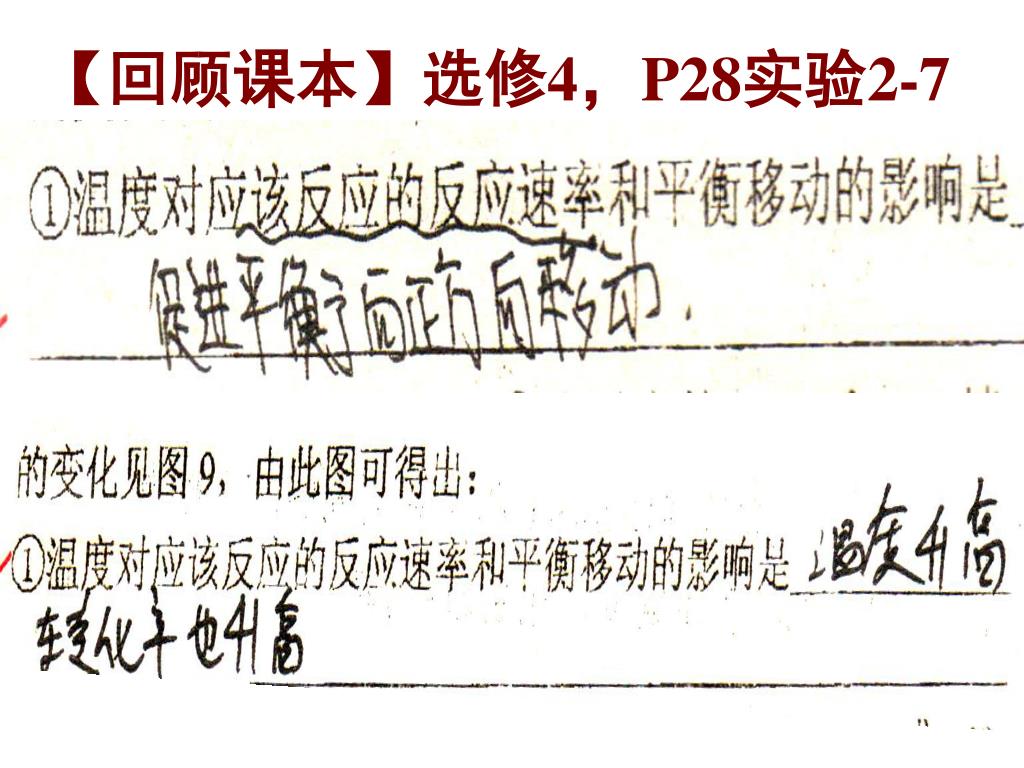 【回顾课本】选修4，P28实验2-7
①温度对应该反应的反应速率和平衡移动的影响是
促进平衡于向正方向移动.
的变化见图9，由此图可得出：
①温度对应该反应的反应速率和平衡移动的影响是 温度升高
转变化率也升高